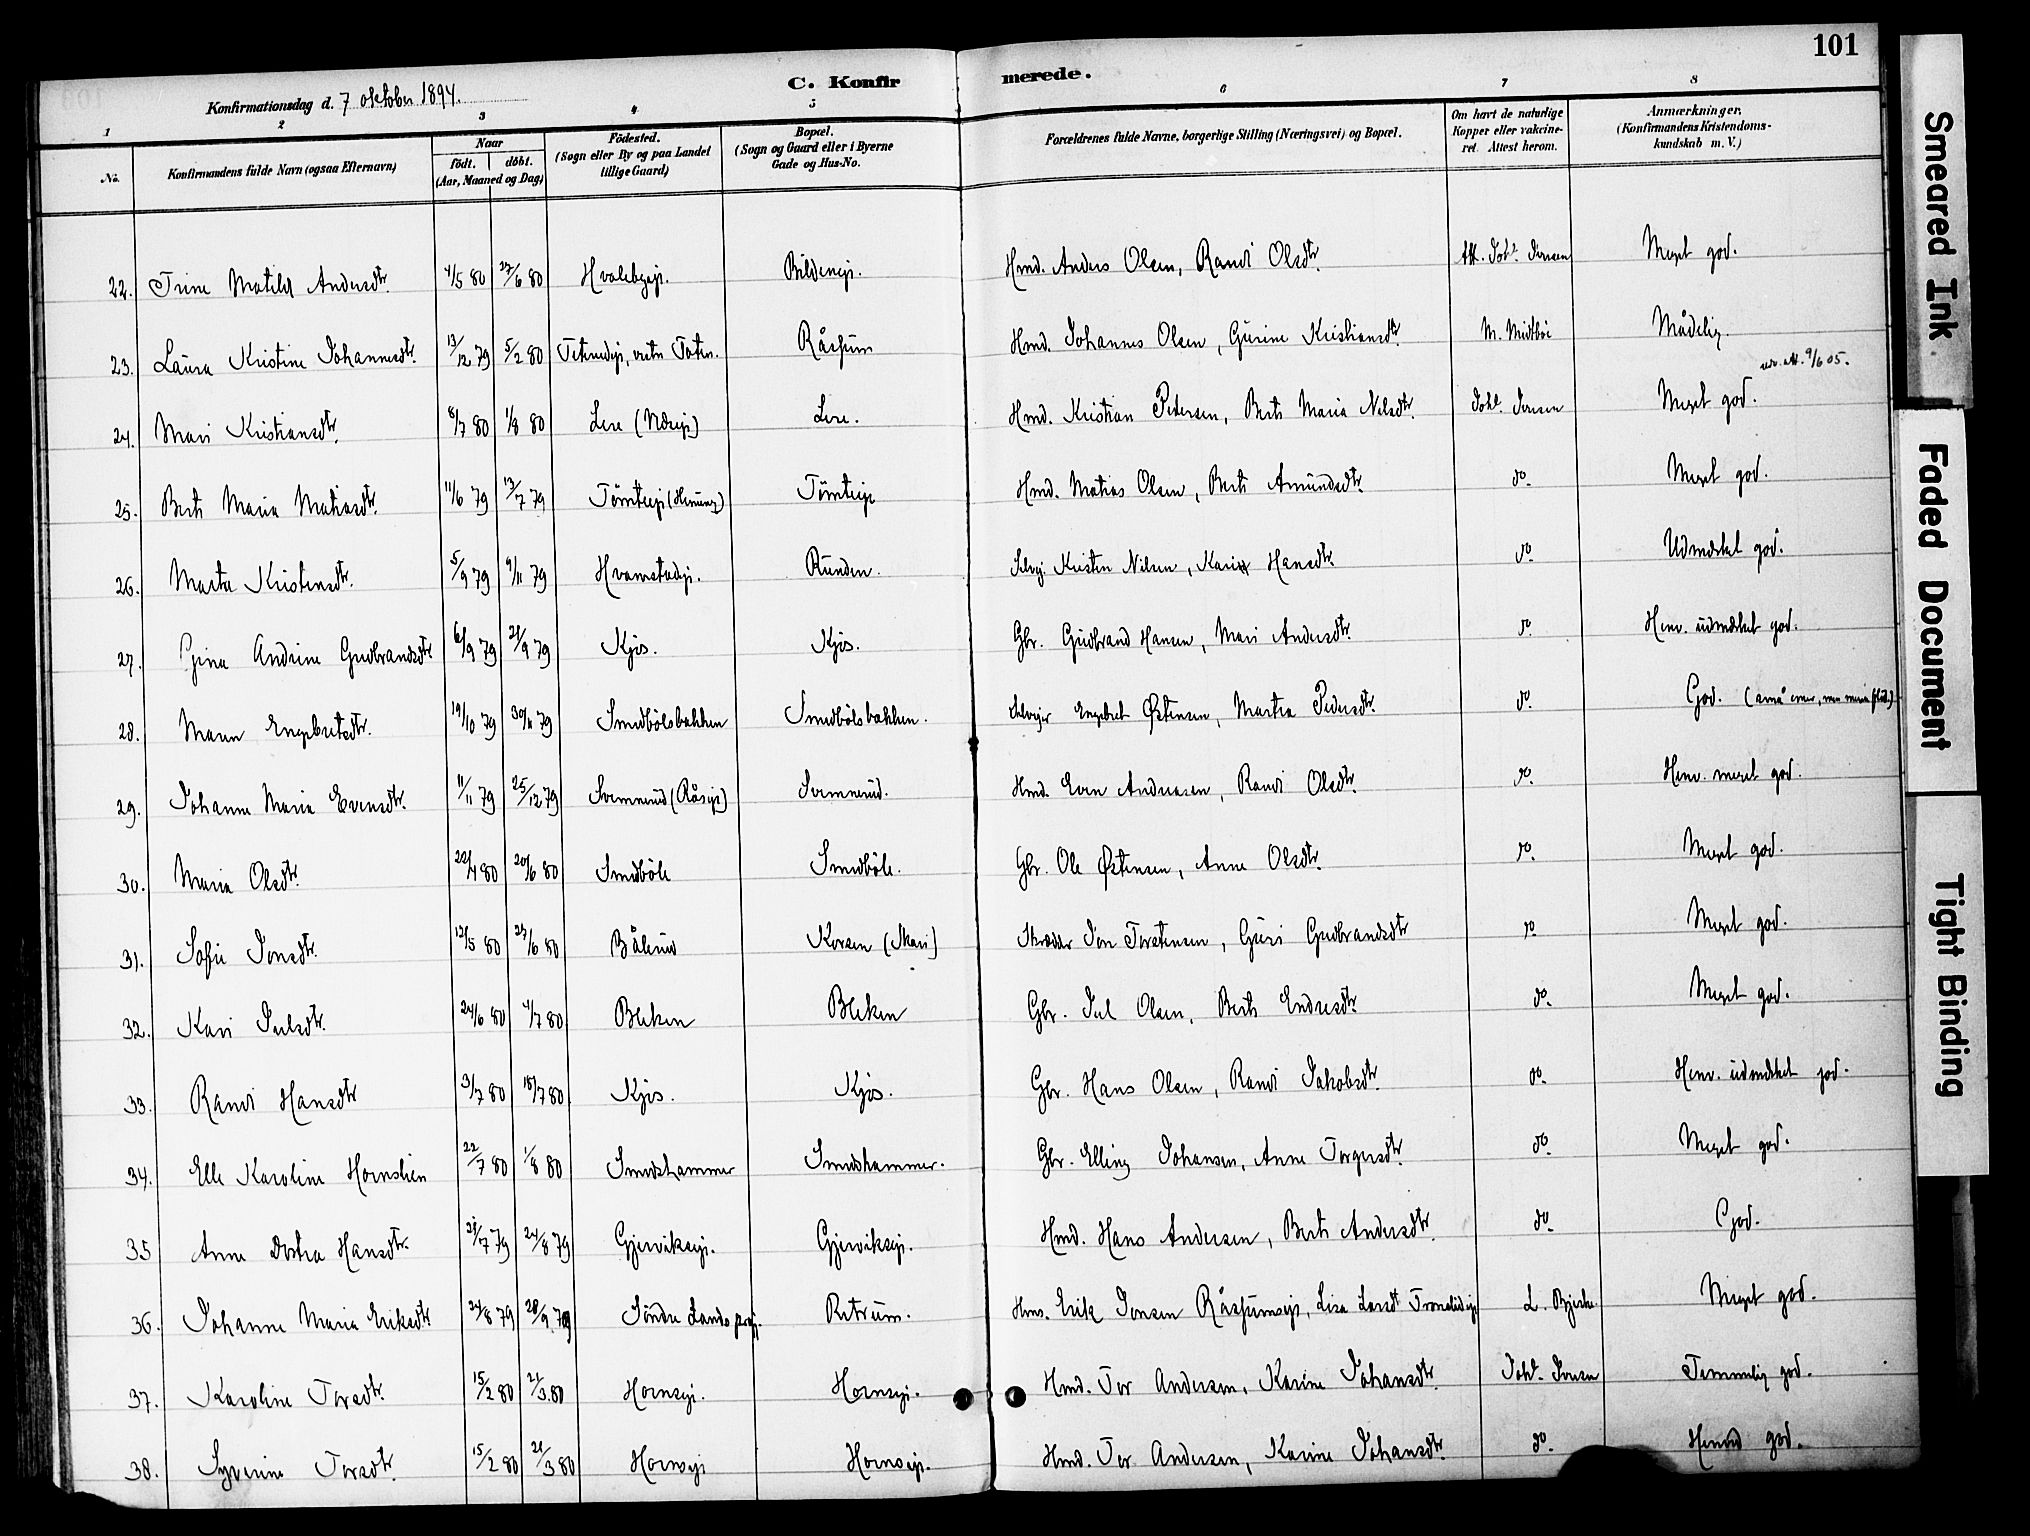 101
C. Konfirmerede.
Konfirmationsdag d. 7 oktober 1894.
1 2 3 4 5 6 7 8
No. Konfirmandens fulde Navn (ogsaa Efternavn) Naar födt. döbt. (Aar, Maaned og Dag) Födested. (Sogn eller By og paa Landet tillige Gaard) Bopæl. (Sogn og Gaard eller i Byerne Gade og Hus-No. Forældrenes fulde Navne, borgerlige Stilling (Næringsvei) og Bopæl. Om havt de naturlige Kopper eller vakcineret. Attest herom. Anmærkninger. (Konfirmandens Kristendomskundskab m. V.)
22. Trine Matild Andersdtr. 4/5 80 27/6 80 Hvalebyejs. Bildenejs. Hmd. Anders Olsen, Randi Olsdtr. Att. Johs. Jensen Meget god.
23. Laura Kristine Johannesdtr. 13/12 79 5/2 80 vestre Toten. Råssum Hmd. Johannes Olsen, Gurine Kristiansdtr. M. Midtböe Mådelig.
utv. att. 9/6 05.
24. Mari Kristiansdtr. 8/7 80 1/8 80 Lere Lere. Hmd. Kristian Petersen, Berte Maria Nilsdtr. Johs. Jensen Meget god.
25. Berte Maria Matiasdtr. 11/6 79 13/7 79 Tömteejs Tömteejs Hmd. Matias Olsen, Berte Amundsdtr. do. Meget god.
26. Marte Kristensdtr. 5/9 79 9/11 79 Hvamstadejs. Runden. Selvej. Kristen Nilsen, Kari Hansdtr. do. Udmærket god.
27. Gina Andrine Gudbrandsdtr 6/9 79 21/9 79 Kjos. Kjos. Gbr. Gudbrand Hansen, Mari Andersdtr. do Henv. udmærket god.
28. Maren Engebretsdtr. 19/10 79 30/11 79 Smedbölsbakken Smedbölsbakken. Selvejer Engebret Østensen, Martea Pedersdtr. do. God. (små evner, men megen flid.)
29. Johanne Maria Evensdtr. 11/11 79 25/12 79 Svennerud Svennerud. Hmd. Even Andreasen, Randi Olsdtr. do. Henv. meget god.
30. Maria Olsdtr. 22/4 80 20/6 80 Smedböle Smedböle. Gbr. Ole Østensen, Anne Olsdtr. do. Meget god.
31. Sofie Jonsdtr. 12/5 80 27/6 80 Bålerud Korsen (Skari) Skrædder Jon Torstensen, Guri Gudbrandsdtr do Meget god.
32. Kari Julsdtr. 24/6 80 4/7 80 Bleken Bleken Gbr. Jul Olsen, Berte Endresdtr. do. Meget god.
33. Randi Hansdtr 3/7 80 18/7 80 Kjos. Kjos. Gbr. Hans Olsen, Randi Jakobsdtr. do. Henv. udmærket god.
34. Elle Karoline Hornslien 22/7 80 1/8 80 Smedshammer Smedshammer. Gbr. Elling Johansen, Anne Torgersdtr. do. Meget god.
35 Anne Dortea Hansdtr. 28/7 79 24/8 79 Gjerviksejs. Gjerviksejs. Hmd. Hans Andersen, Berte Andersdtr. do. God.
36. Johanne Maria Eriksdtr 24/8 79 28/9 79 Söndre Lands prgj. Retrum. Hms. Erik Jonsen Råssumsejs, Lisa Larsdt. L. Bjerke Meget god.
37. Karoline Torsdtr. 15/2 80 21/3.80 Hornsejs. Hornsejs. Hmd. Tor Andersen, Karine Johansdtr. Johs. Jensen Temmelig god.
38. Syverine Torsdtr. 15/2 80 21/3 80 Hornsejs Hornsejs. Hmd. Tor Andersen, Karine Johansdtr. do. Henved god.
Smeared Ink
Faded Document
Tight Binding